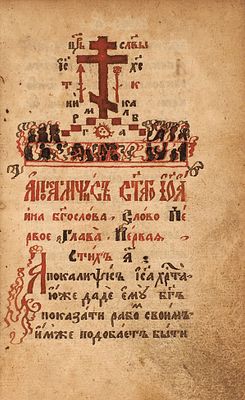 црь славы
іс хс
ни ка
м л р б
Апокалиѱисъ ст҃аго іѡа
нна бг҃ослова. Слово пе
рвое. Глава. Первая
Стихъ а҃
Апокалиѱис іс҃а хр҃та
юже даде ему бг҃ъ
показати рабо своимъ
имже подобаетъ быти